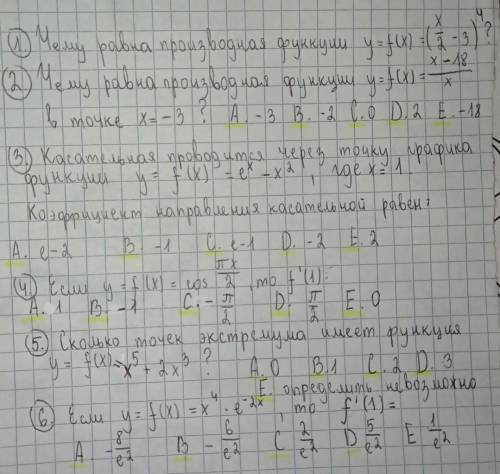 ① Чему равна производная функции y=f(x)=(x/2 - 3)⁴?
② Чему равна производная функции y=f(x)=(x-18)/x
в точке x=-3? A. -3 B. -2 C. 0 D. 2 E. -18
③ Касательная проводится через точку графика
функции y = f'(x) = eˣ - x², где x=1.
Коэффициент направления касательной равен:
A. e-2 B. -1 C. e-1 D. -2 E. 2
④ Если y=f(x)=cos πx/2, то f'(1):
A. 1 B. -1 C. -π/2 D. π/2 E. 0
⑤ Сколько точек экстремума имеет функция
y = f(x)=x⁵ + 2x³? A. 0 B. 1 C. 2 D. 3
E. определить невозможно
⑥ Если y=f(x)=x⁴·e⁻²ˣ, то f'(1)=
A. -8/e² B - 6/e² C 2/e² D 5/e² E 1/e²